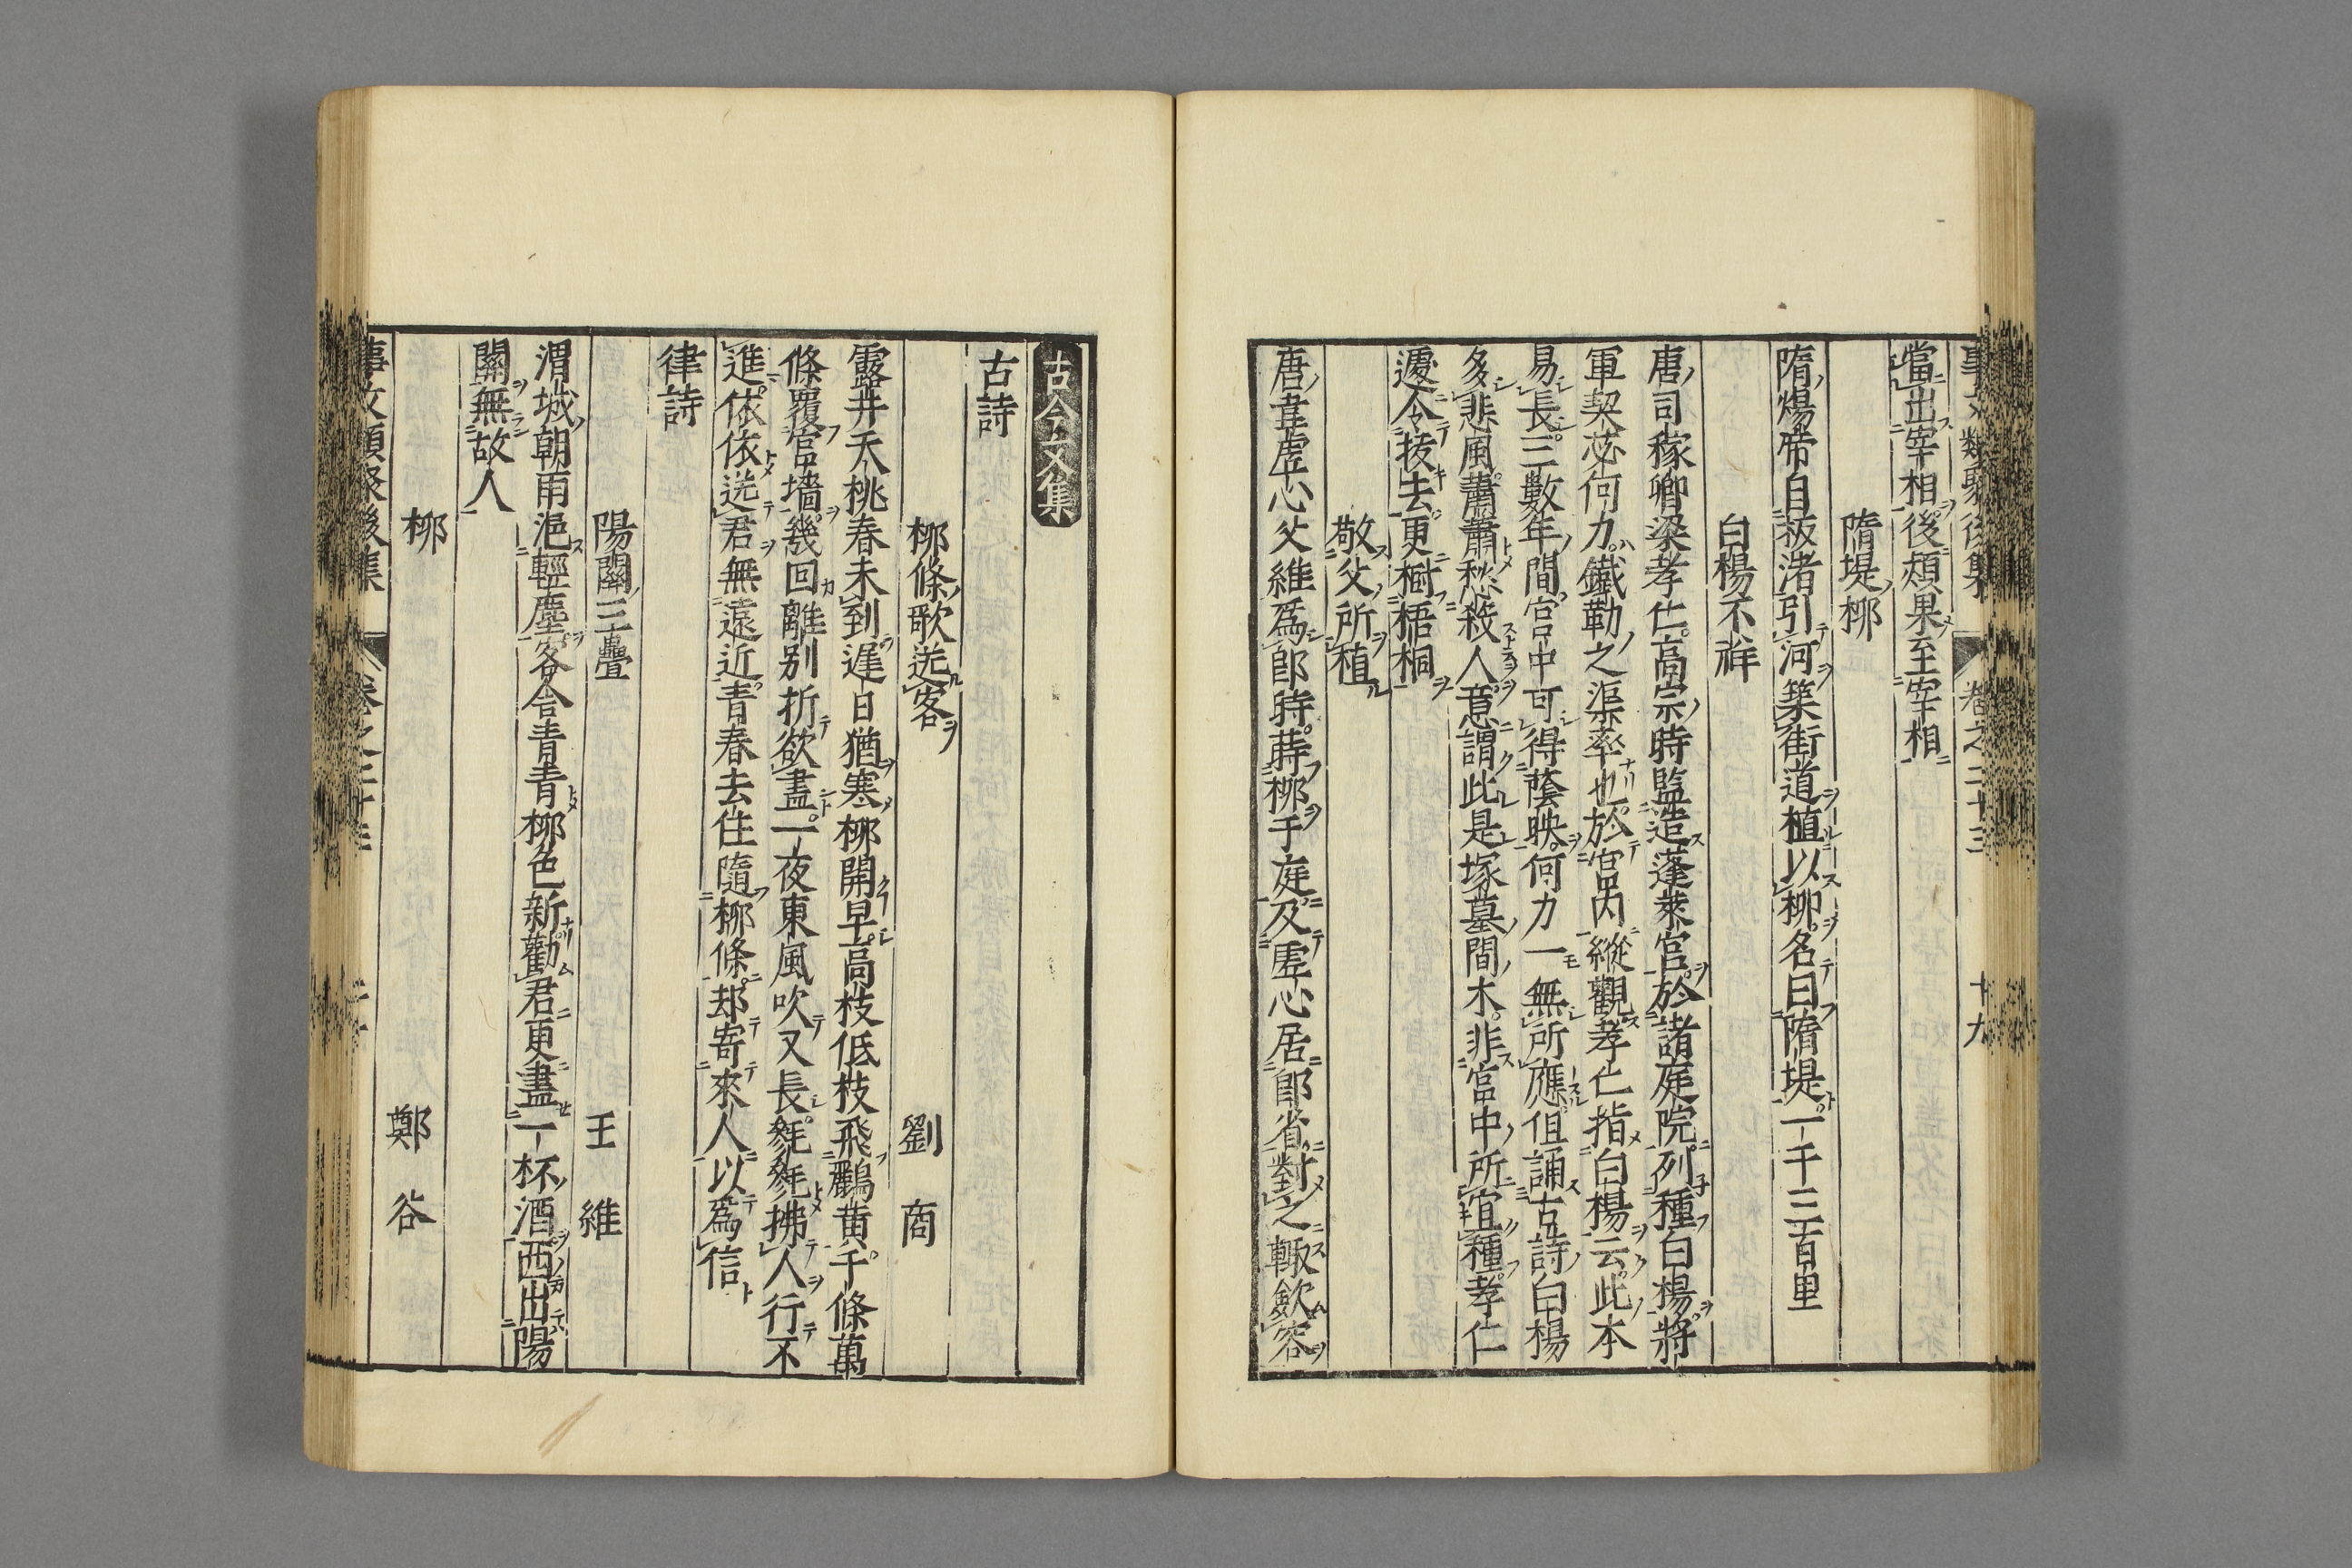 事文類聚後集 卷之二十三 十九
當出宰相後頗果至宰相
隋堤柳
隋煬帝自板渚引河築街道植以柳名曰隋堤一千三百里
白楊不祥
唐司稼卿梁孝仁高宗時監造蓬萊宮於諸庭院列種白楊將
軍契苾何力鐵勒之渠率也於宮内縱觀孝仁指白楊云此木
易長三數年間宮中可得蔭映何力一無所應但誦古詩白楊
多悲風蕭蕭愁殺人意謂此是塚墓間木非宮中所宜種孝仁
遽令拔去更樹梧桐
敬父所植
唐韋虛心父維爲郎時蒔柳于庭及虛心居郎省對之輙歛容
古今文集
古詩
柳條歌送客 劉商
露井夭桃春未到遲日猶寒柳開早高枝低枝飛鸝黄千條萬
條覆宮墻幾回離别折欲盡一夜東風吹又長毿毿拂人行不
進依依送君無遠近青春去住隨柳條却寄來人以爲信
律詩
陽關三疊 王維
渭城朝雨浥輕塵客舍青青柳色新勸君更盡一杯酒西出陽
關無故人
柳 鄭谷
事文類聚後集 卷之二十三